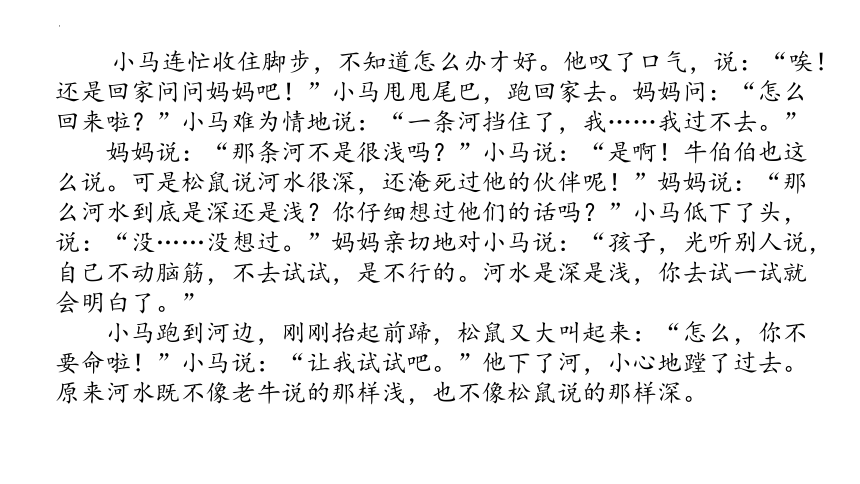 小马连忙收住脚步，不知道怎么办才好。他叹了口气，说：“唉！
还是回家问问妈妈吧！”小马甩甩尾巴，跑回家去。妈妈问：“怎么
回来啦？”小马难为情地说：“一条河挡住了，我……我过不去。”
妈妈说：“那条河不是很浅吗？”小马说：“是啊！牛伯伯也这
么说。可是松鼠说河水很深，还淹死过他的伙伴呢！”妈妈说：“那
么河水到底是深还是浅？你仔细想过他们的话吗？”小马低下了头，
说：“没……没想过。”妈妈亲切地对小马说：“孩子，光听别人说，
自己不动脑筋，不去试试，是不行的。河水是深是浅，你去试一试就
会明白了。”
小马跑到河边，刚刚抬起前蹄，松鼠又大叫起来：“怎么，你不
要命啦！”小马说：“让我试试吧。”他下了河，小心地蹚了过去。
原来河水既不像老牛说的那样浅，也不像松鼠说的那样深。